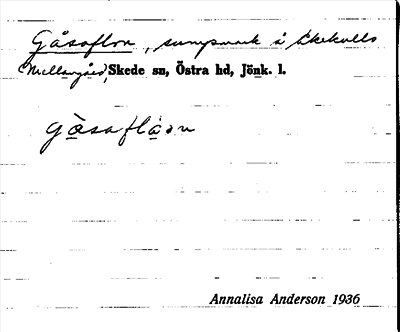 Gåsaflon, sumpmark å Ekekulls
(Mellangård) Skede sn, Östra hd, Jönk. l.
gåsaflån
Annalisa Anderson 1936